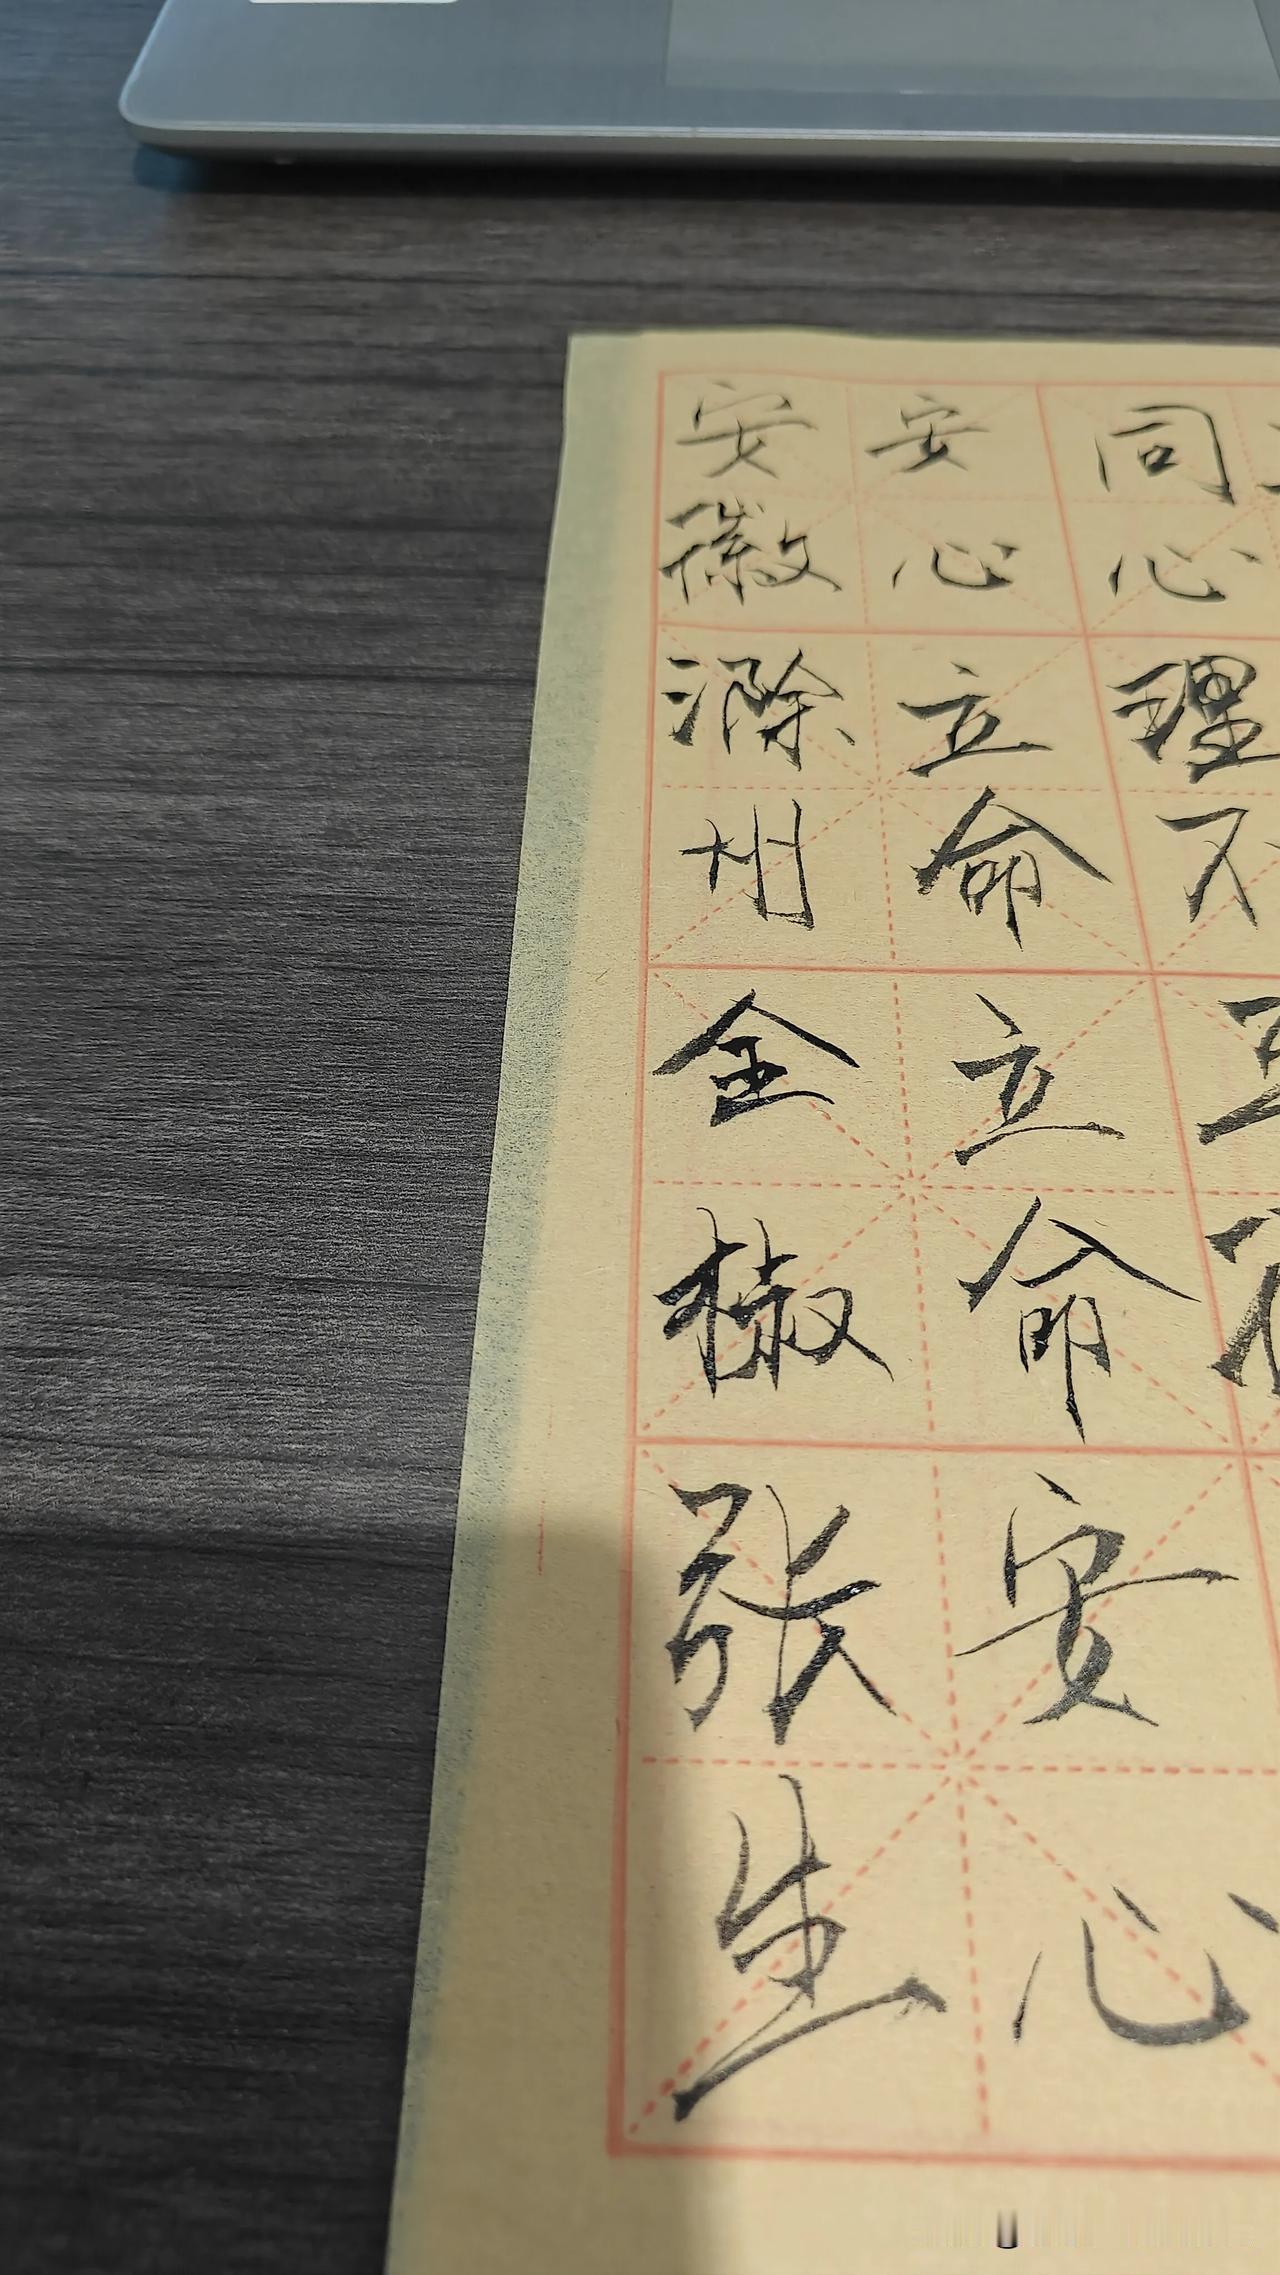 同心理不
安心立命立命安心
安徽滁州全椒张生